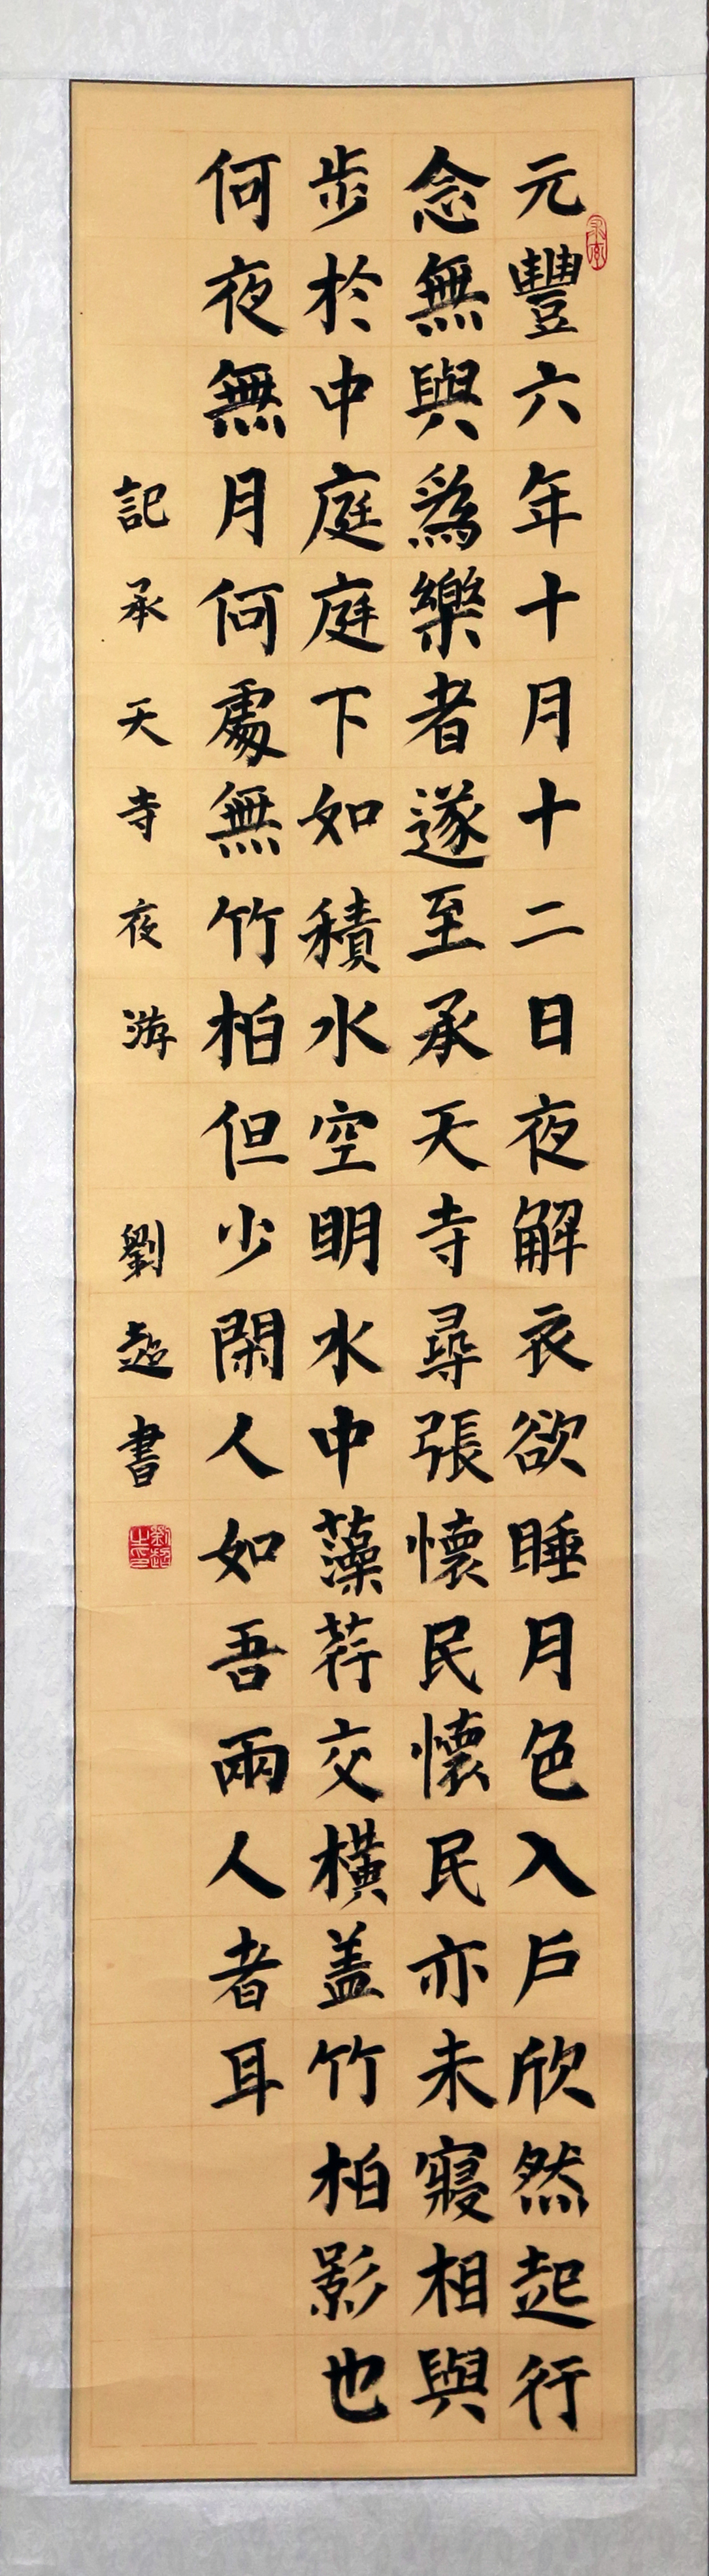 元豐六年十月十二日夜解衣欲睡月色入戶欣然起行
念無與爲樂者遂至承天寺尋張懷民懷民亦未寢相與
步於中庭庭下如積水空明水中藻荇交橫盖竹柏影也
何夜無月何處無竹柏但少閑人如吾兩人者耳
記承天寺夜游
劉超書